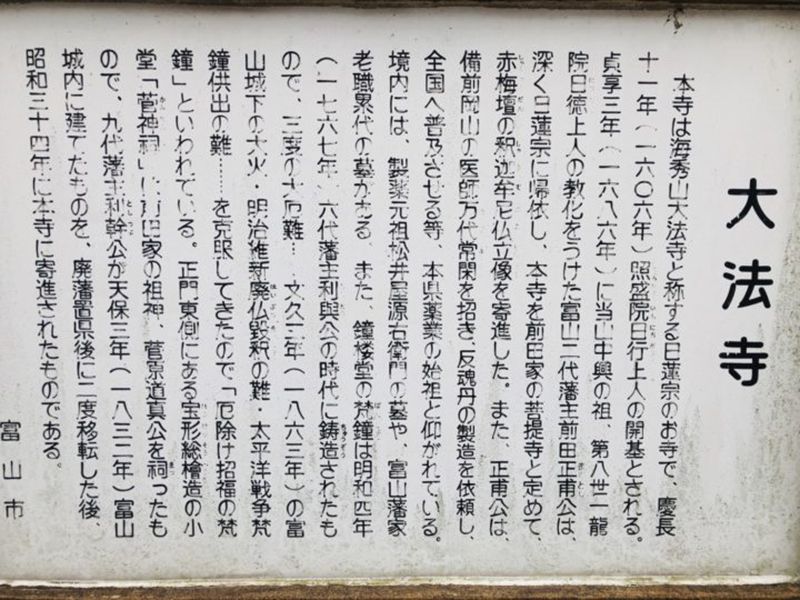 大法寺
本寺は海秀山大法寺と称する日蓮宗のお寺で、慶長
十一年(一六〇六年)照盛院日行上人の開基とされる。
貞享三年(一六八六年)に当山中興の祖、第八世一龍
院日徳上人の教化をうけた富山二代藩主前田正甫公は、
深く日蓮宗に帰依し、本寺を前田家の菩提寺と定めて、
赤梅壇の釈迦牟尼仏立像を寄進した。また、正甫公は、
備前岡山の医師万代常閑を招き、反魂丹の製造を依頼し、
全国へ普及させる等、本県薬業の始祖と仰がれている。
境内には、製薬元祖松井屋源右衛門の墓や、富山藩家
老職累代の墓がある。また、鐘楼堂の梵鐘は明和四年
(一七六七年)六代藩主利與公の時代に鋳造されたも
ので、三度の大厄難…文久三年(一八六三年)の富
山城下の大火・明治維新廃仏毀釈の難・太平洋戦争梵
鐘供出の難……を克服してきたので「厄除け招福の梵
鐘」といわれている。正門東側にある宝形総檜造の小
堂「菅神祠」は前田家の祖神、菅原道真公を祠ったも
ので、九代藩主利幹公が天保三年(一八三二年)富山
城内に建てたものを、廃藩置県後に二度移転した後、
昭和三十四年に本寺に寄進されたものである。
富山市